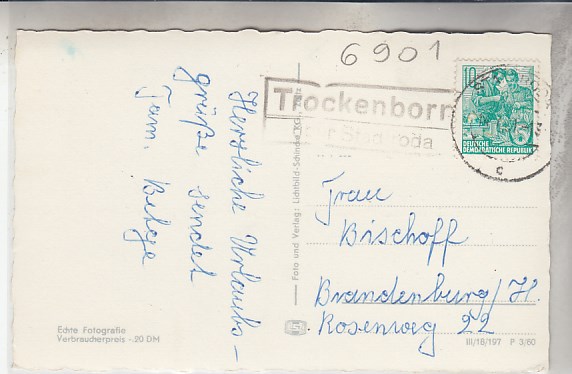 6901
Herzliche Urlaubs-
grüße sendet
Fam. Belge
Trockenborn
über Stadtroda
10
5
DEUTSCHE
DEMOKRATISCHE REPUBLIK
c
Foto und Verlag: Lichtbild-
Frau
Bischoff
Brandenburg/H.
Rosenweg 22
Echte Fotografie
Verbraucherpreis -.20 DM
III/18/197 P 3/60